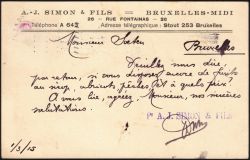 A.-J. SIMON & FILS — BRUXELLES-MIDI
26 - RUE FONTAINAS - 26
Téléphone A 642 Adresse télégraphique : Stout 253 Bruxelles
Monsieur
Bruxelles
Veuillez nous dire
par retour, si vous disposez encore de fûts
au à quels prix ?
A vous lire, agréez Monsieur, nos sincères
salutations
Pr A. J. SIMON & FILS